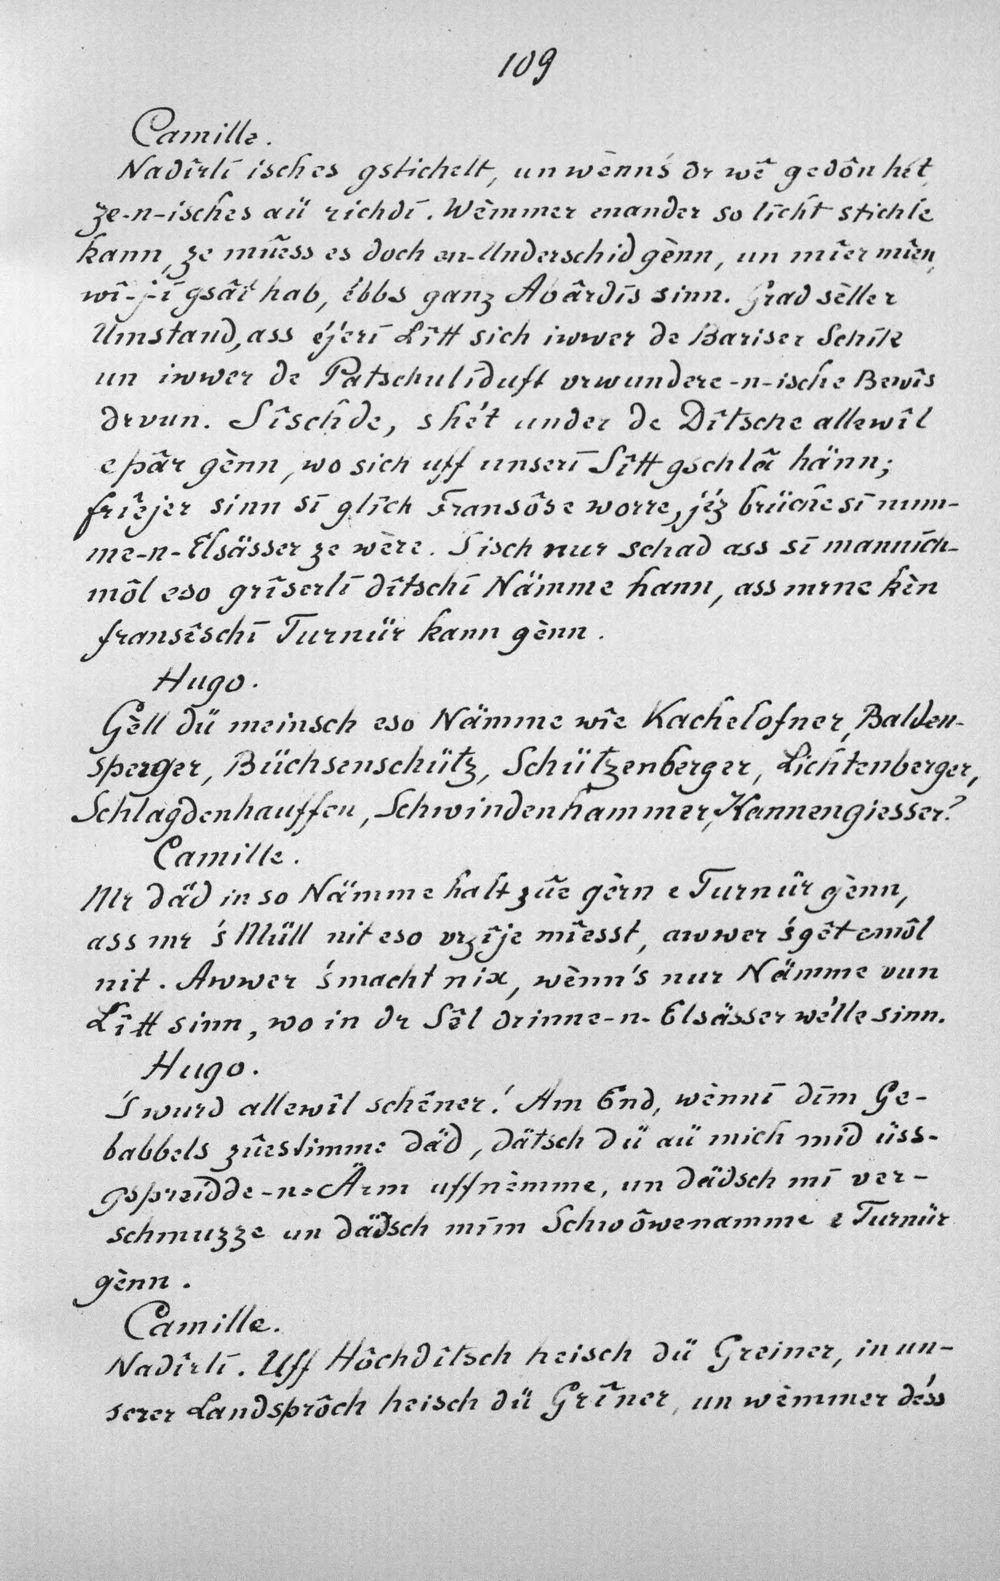 109
Camille.
Nadîrlĩ isch es gstichelt, un wènn's dr wê gedôn hét,
ze-n-isches aü richdĩ. Wèmmer enander so lîcht stichle
kann, ze müess es doch en-Underschid gènn, un mîer mîen,
wî-j-ĩ gsât hab, ébbs ganz Abârdĩs sinn. Grad sèller
Umstand, ass éjerĩ Lîtt sich iwwer de Bariser Schik
un iwwer de Patschulĩduft vrwundere-n-ische Bewîs
drvun. Sîschde, s hét under de Dîtsche allewîl
e pâr gènn, wo sich uff unserĩ Sîtt gschlâ hänn;
friêjer sinn sĩ glîch Fransôse worre, jéz brüche sĩ num-
me-n-Elsässer ze wère. S isch nur schad ass sĩ mannich-
môl eso grîserlĩ dîtschĩ Nämme hann, ass mrne kèn
fransêschĩ Turnür kann gènn.
Hugo.
Gèll dü meinsch eso Nämme wîe Kachelofner, Balden-
sperger, Büchsenschütz, Schützenberger, Lichtenberger,
Schlagdenhauffen, Schwindenhammer, Kannengiesser?
Camille.
Mr däd in so Nämme halt züe gèrn e Turnür gènn,
ass mr 's Müll nit eso vrzîje mîesst, awwer 's gêt emôl
nit. Awwer 's macht nix, wènn's nur Nämme vun
Lîtt sinn, wo in dr Sêl drinne-n-Elsässer wélle sinn.
Hugo.
'S wurd allewîl schêner! Am End, wènnĩ dîm Ge-
babbels züestimme däd, dätsch dü aü mich mid üss-
gspreidde-ne Ärm uffnèmme, un dädsch mĩ ver-
schmuzze un dädsch mîm Schwôwenamme e Turnür
gènn.
Camille.
Nadîrlĩ. Uff Hôchdîtsch heisch dü Greiner, in un-
serer Landsprôch heisch dü Grîner, un wèmmer déss